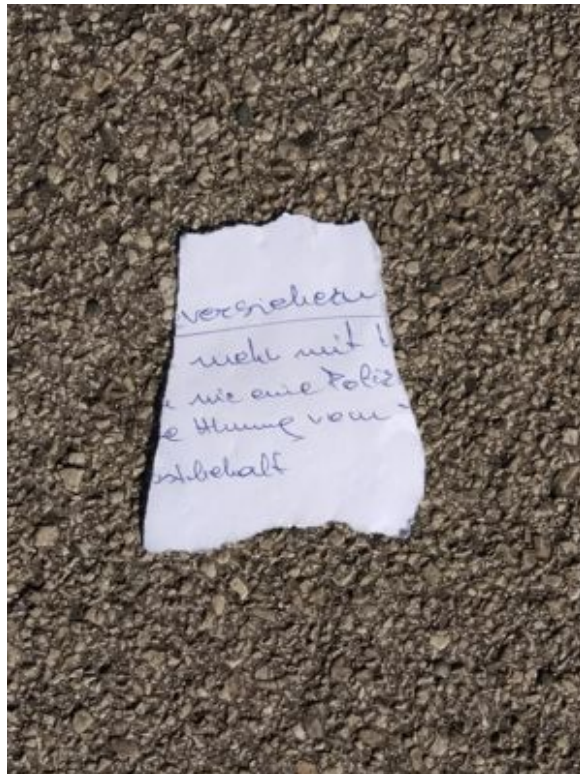 versichern
mehr mit
nie eine Poliz
e Ahnung vom
stbehalt